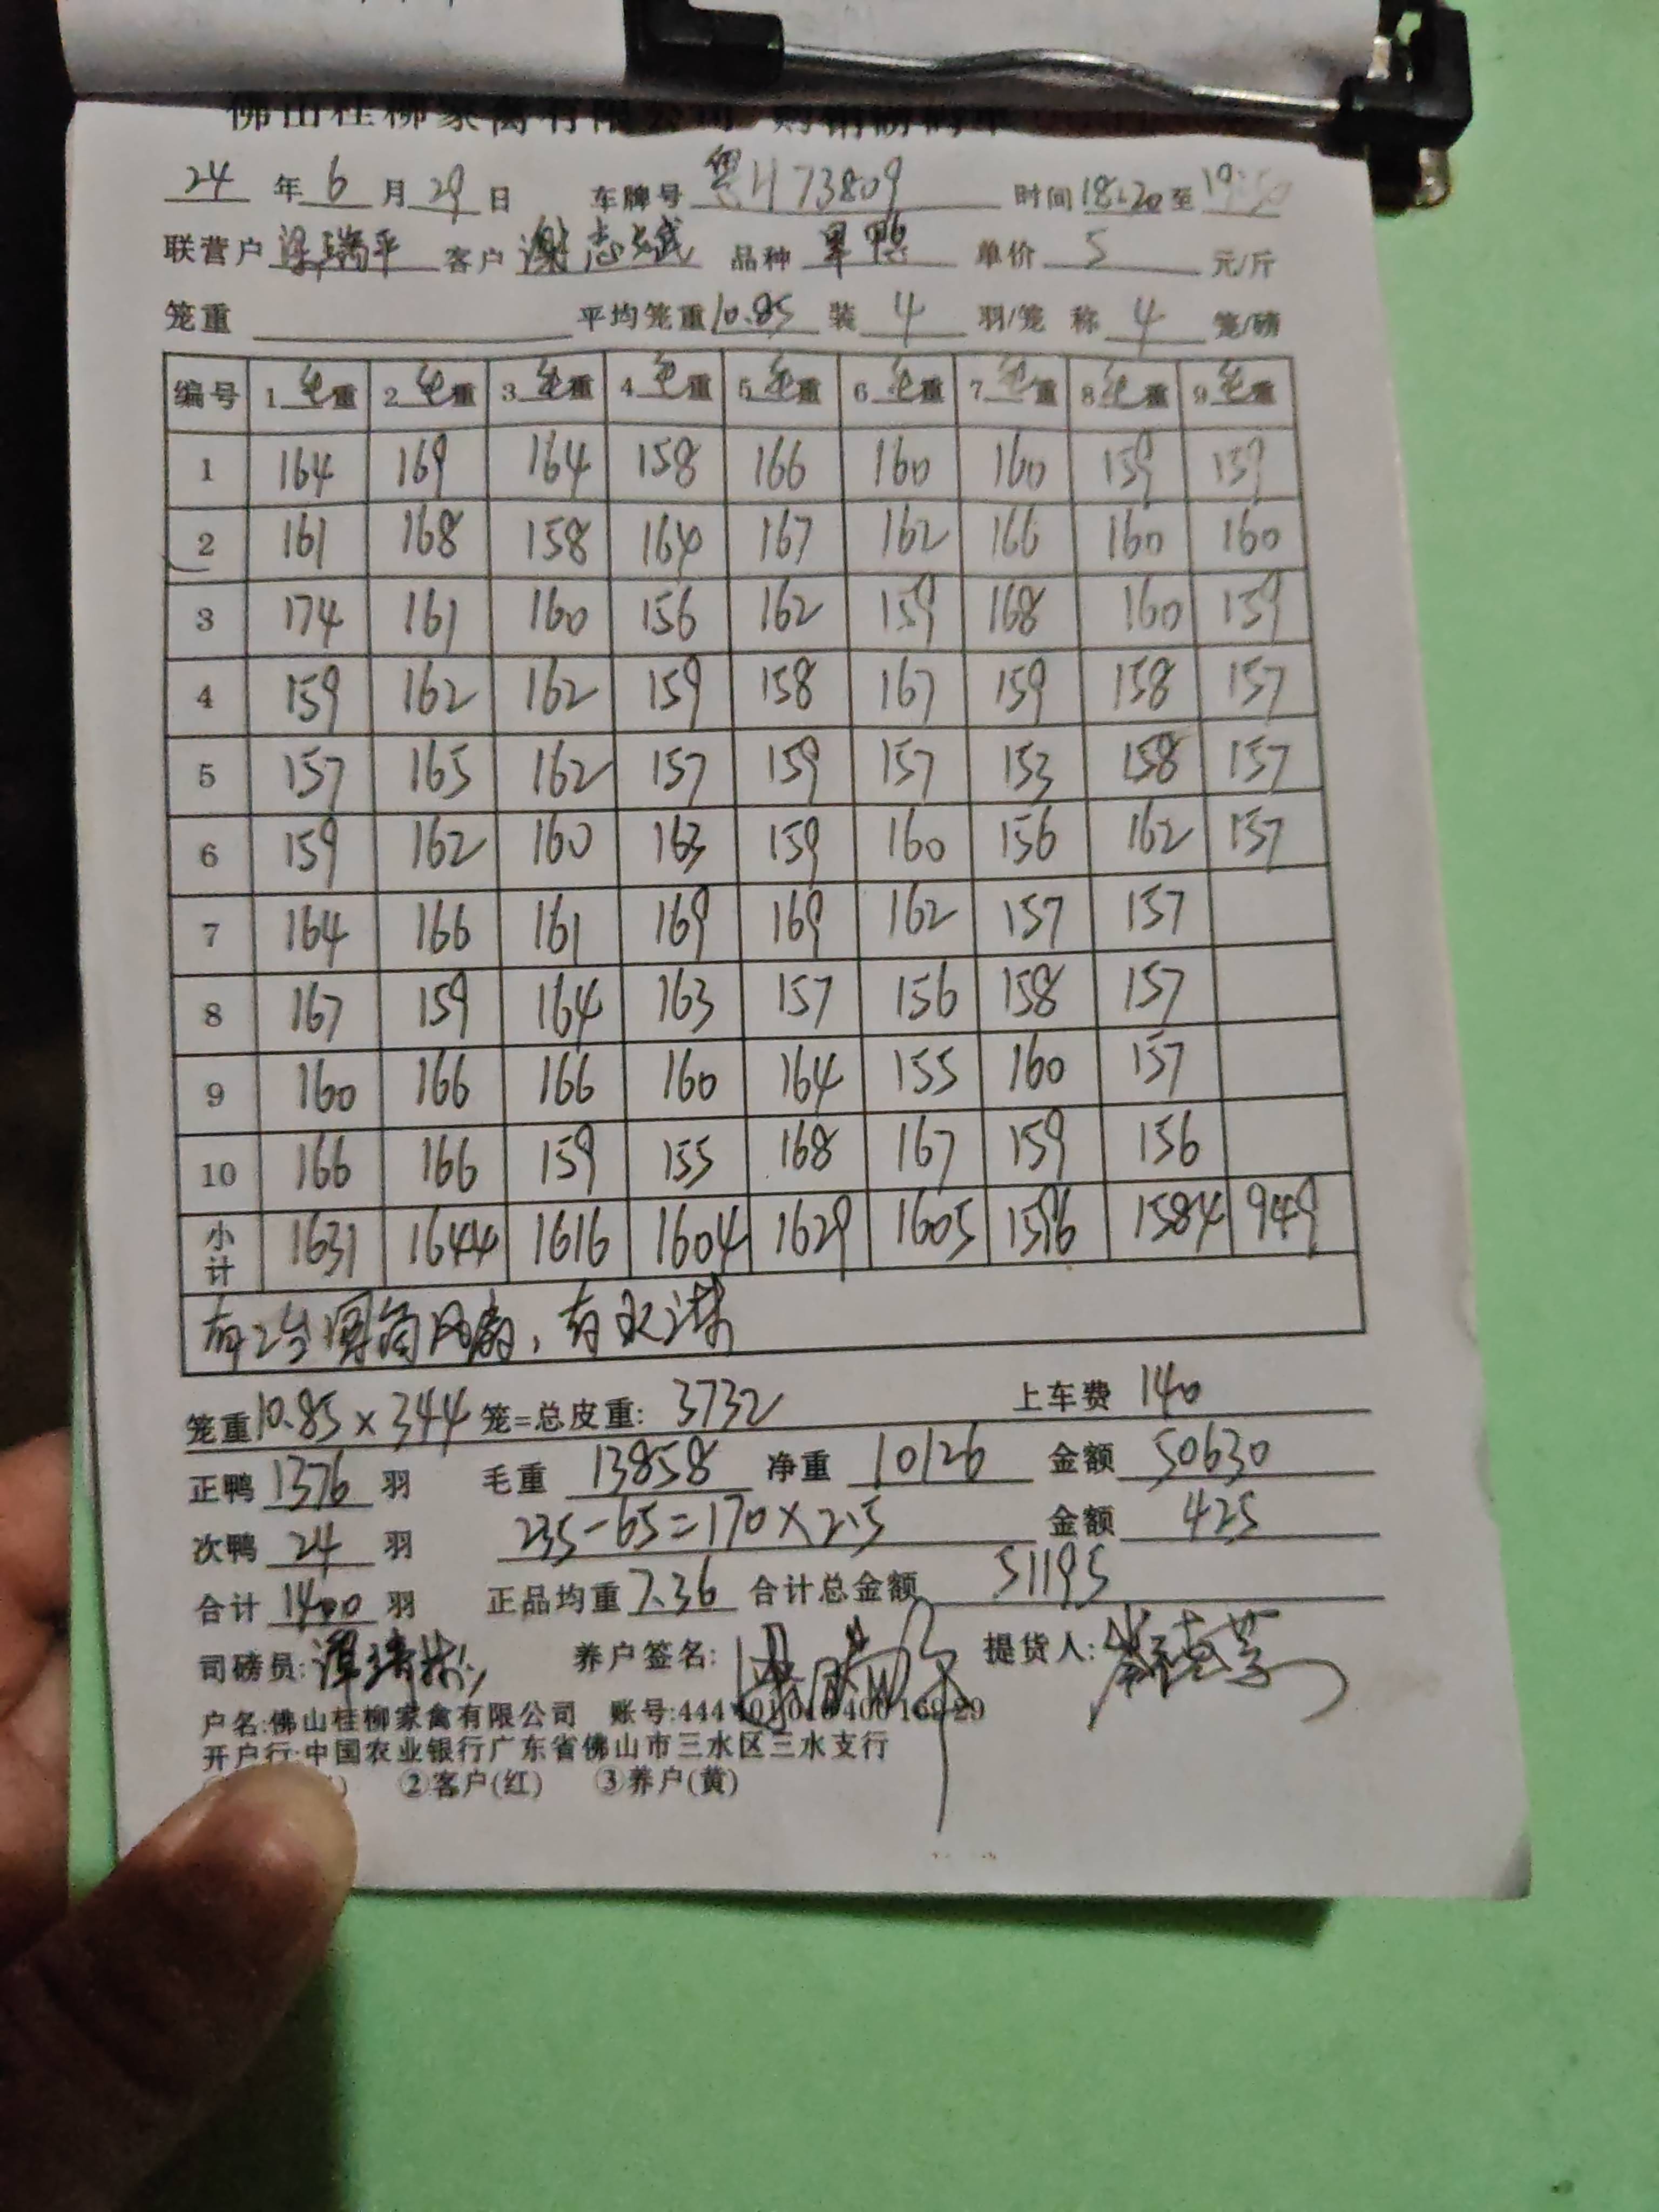 佛山桂柳家禽有限公司 购销磅码单
24 年 6 月 29 日 车牌号 粤H73809 时间 18:20 至 19:50
联营户 梁瑞平 客户 谢志斌 品种 单价 5 元/斤
笼重 平均笼重 10.85 装 4 羽/笼 称 4 笼/磅
编号 1 毛重 2 毛重 3 毛重 4 毛重 5 毛重 6 毛重 7 毛重 8 毛重 9 毛重
1 164 169 164 158 166 160 160 159 159
2 161 168 158 164 167 162 166 160 160
3 174 161 160 156 162 159 168 160 159
4 159 162 162 159 158 167 159 158 157
5 157 165 162 157 159 157 153 158 157
6 159 162 160 163 159 160 156 162 157
7 164 166 161 169 169 162 157 157
8 167 159 164 163 157 156 158 157
9 160 166 166 160 164 155 160 157
10 166 166 159 155 168 167 159 156
小计 1631 1644 1616 1604 1629 1605 1596 1584 949
有2台圆筒风扇，有水淋
笼重 10.85 × 344 笼=总皮重: 3732 上车费 140
正鸭 1376 羽 毛重 13858 净重 10126 金额 50630
次鸭 24 羽 235-65=170×2.5 金额 425
合计 1400 羽 正品均重 7.36 合计总金额 51195
司磅员: 养户签名: 提货人:
户名:佛山桂柳家禽有限公司 账号:444
开户行:中国农业银行广东省佛山市三水区三水支行
②客户(红) ③养户(黄)